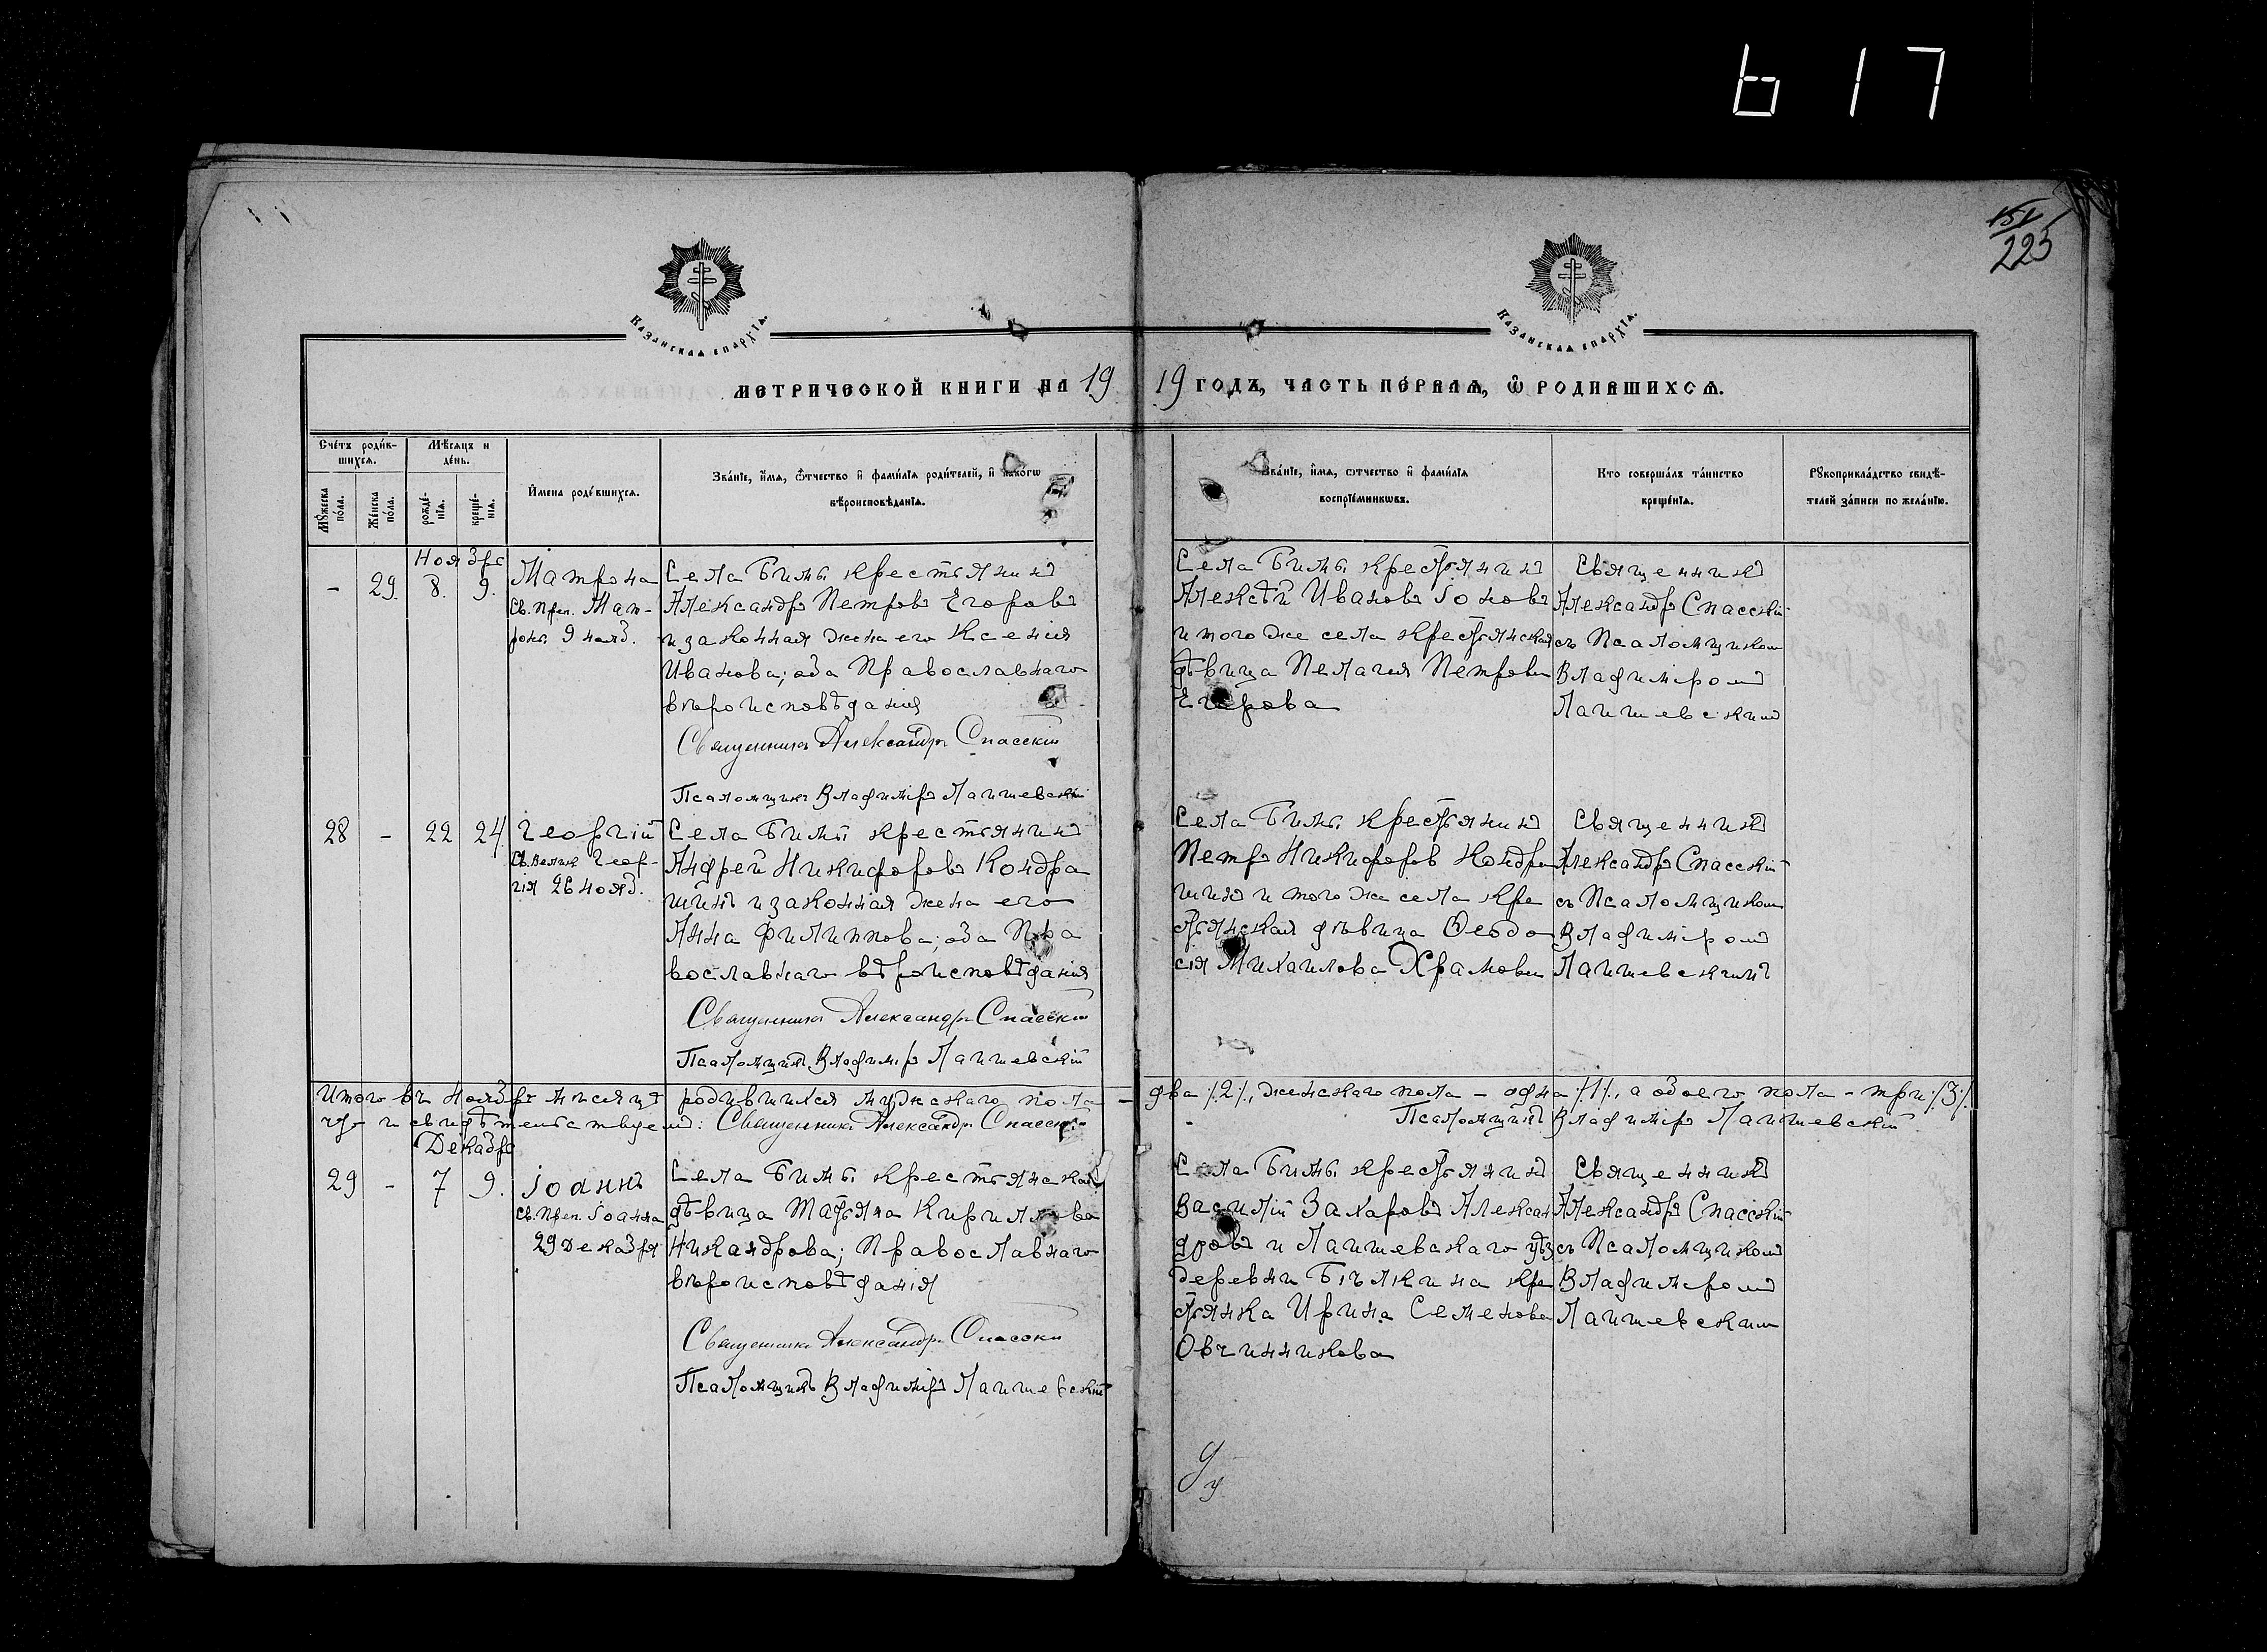 617
151
225
Казанская епархїа.
Казанская епархїа.
метрической книги на 1919 годъ, часть первая, ѿ родившихся.
Счетъ родив-
шихся.
Мѣсяцъ и
день.
Мужеска
пола.
Женска
пола.
рожде-
нїя.
креще-
нїя.
Имена родившихся.
Званїе, имя, отчество и фамилїя родителей, и какогѡ
вѣроисповѣданїя.
Званїе, имя, отчество и фамилїя
воспрїемникѡвъ.
Кто совершалъ таинство
крещенїя.
Рукоприкладство свидѣ-
телей записи по желанїю.
Ноябрь
- 29. 8. 9.
Матрона
Св. Преп. Мат-
роны 9 нояб.
Села Бимы крестьянинъ
Александръ Петровъ Егоровъ
и законная жена его Ксенія
Иванова; оба Православнаго
вѣроисповѣданія
Священникъ Александръ Спасскій
Псаломщикъ Владиміръ Лаишевскій
Села Бимы крестьянинъ
Алексѣй Ивановъ Іоновъ
и того же села крестьянская
дѣвица Пелагия Петрова
Егорова
Священникъ
Александръ Спасскій
съ Псаломщикомъ
Владиміромъ
Лаишевскимъ
28 - 22 24.
Георгій
Св. Велик. Геор-
гія 26 нояб.
Села Бимы крестьянинъ
Андрей Никифоровъ Кондра
шинъ и законная жена его
Анна Филиппова; оба Пра
вославнаго вѣроисповѣданія
Священникъ Александръ Спасскій
Псаломщикъ Владиміръ Лаишевскій
Села Бимы крестьянинъ
Петръ Никифоровъ Кондра
шинъ и того же села кре
стьянская дѣвица Ѳеодо
сія Михаилова Храмова
Священникъ
Александръ Спасскій
съ Псаломщикомъ
Владиміромъ
Лаишевскимъ
Итого въ Ноябрѣ мѣсяцѣ родившихся мужескаго пола - два /2/, женскаго пола - одна /1/, а обоего пола - три /3/
что и свидѣтельствуемъ: Священникъ Александръ Спасскій Псаломщикъ Владиміръ Лаишевскій
Декабрь
29 - 7 9.
Іоаннъ
Св. Преп. Іоанна
29 Декабря
Села Бимы крестьянская
дѣвица Татьяна Кириллова
Никандрова; Православнаго
вѣроисповѣданія
Священникъ Александръ Спасскій
Псаломщикъ Владиміръ Лаишевскій
Села Бимы крестьянинъ
Василій Захаровъ Алексан
дровъ и Лаишевскаго уѣз
деревни Бѣлкина кре
стьянка Ирина Семенова
Овчинникова
Священникъ
Александръ Спасскій
съ Псаломщикомъ
Владиміромъ
Лаишевским